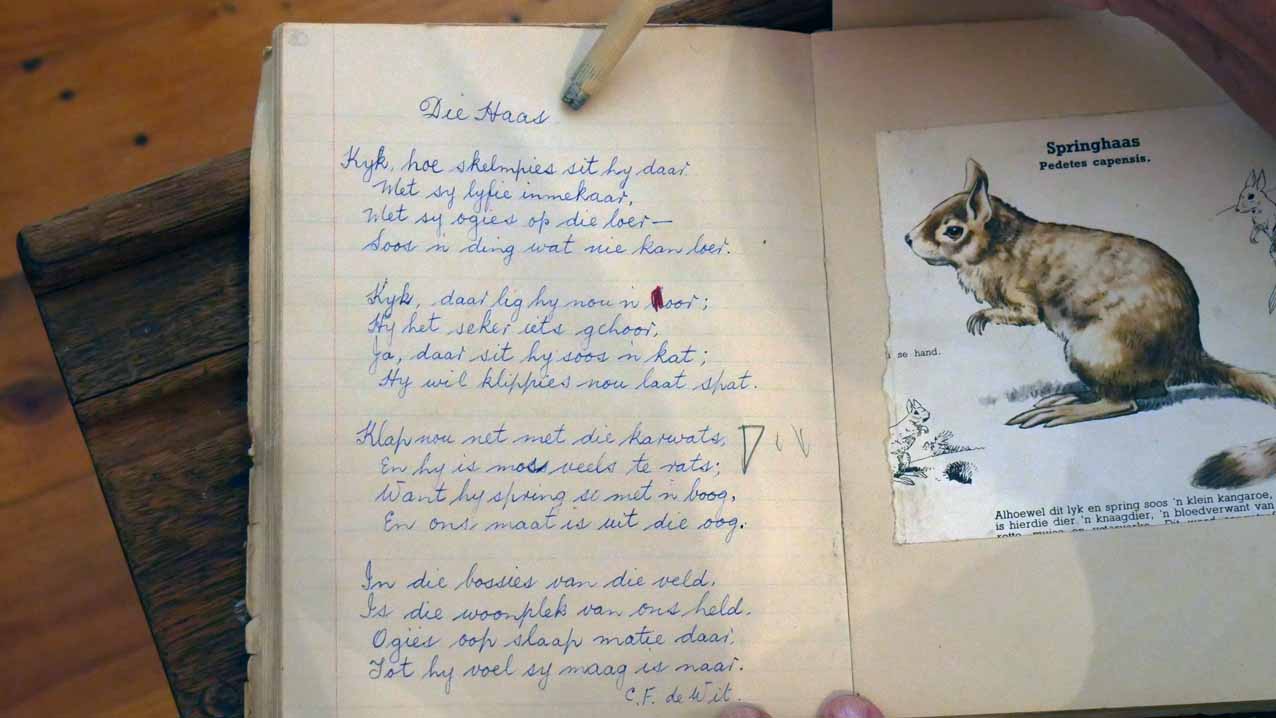 Die Haas
Kyk, hoe skelmpies sit hy daar
Met sy lyfie inmekaar,
Met sy ogies op die loer—
Soos 'n ding wat nie kan loer.
Kyk, daar lig hy nou 'n oor;
Hy het seker iets gehoor,
Ja, daar sit hy soos 'n kat;
Hy wil klippies nou laat spat.
Klap nou net met die karwats,
En hy is mos veels te rats;
Want hy spring so met 'n boog,
En ons maat is uit die oog.
In die bossies van die veld,
Is die woonplek van ons held.
Ogies oop slaap matie daar,
Tot hy voel sy maag is naar.
C.F. de Wit.
Springhaas
Pedetes capensis.
se hand.
Alhoewel dit lyk en spring soos 'n klein kangaroe,
is hierdie dier 'n knaagdier, 'n bloedverwant van